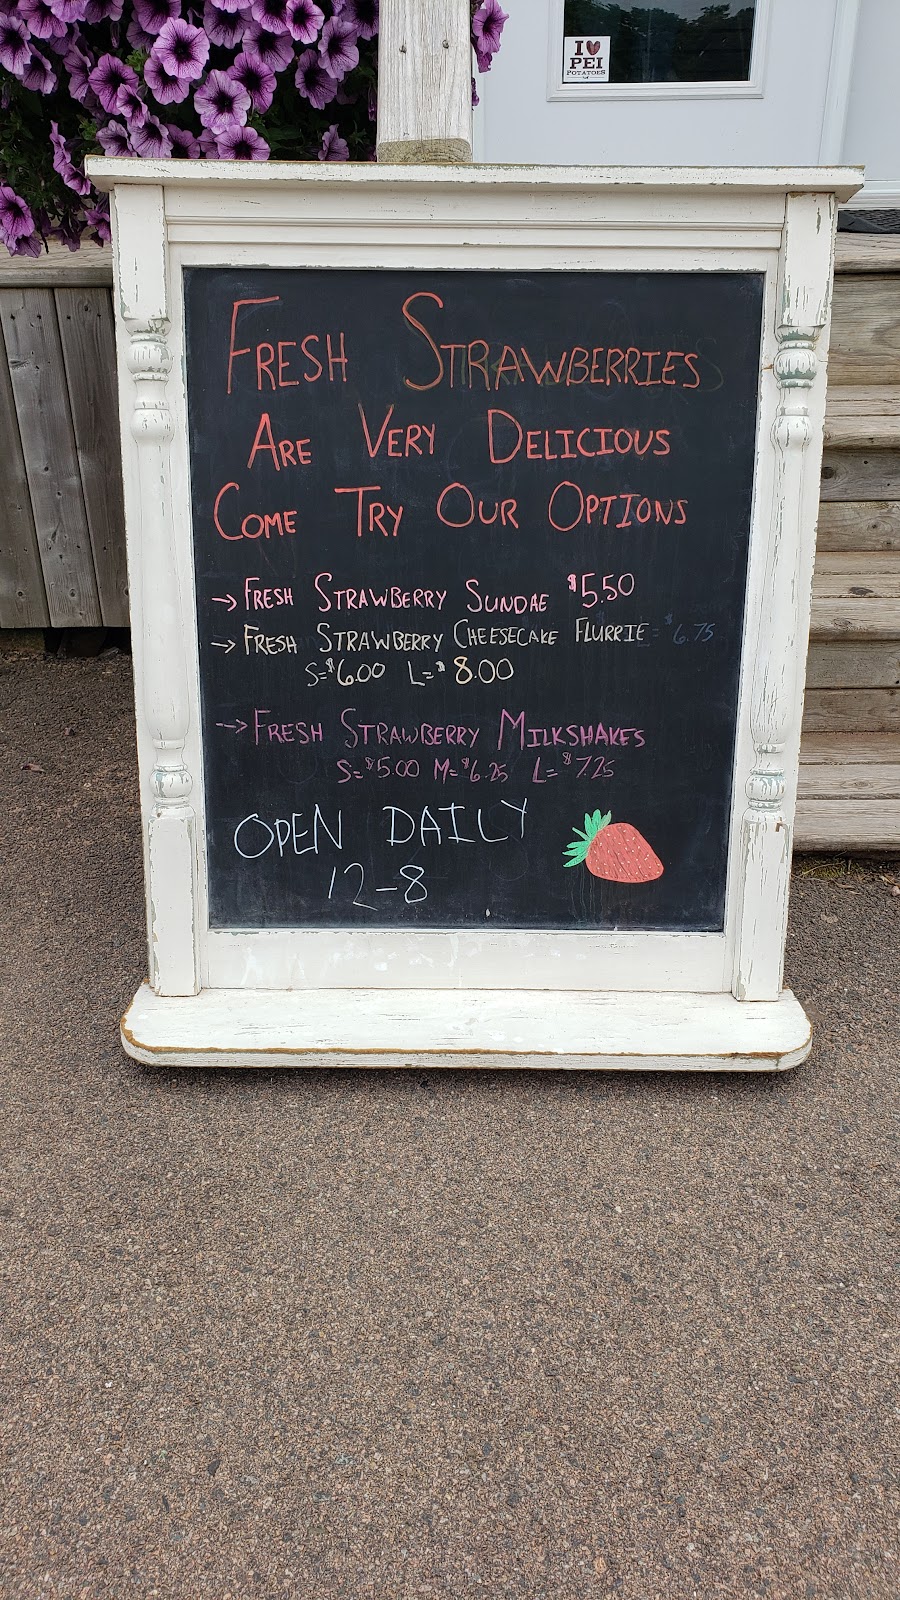 I ♥ PEI
POTATOES
FRESH STRAWBERRIES
ARE VERY DELICIOUS
COME TRY OUR OPTIONS
→ FRESH STRAWBERRY SUNDAE $5.50
→ FRESH STRAWBERRY CHEESECAKE FLURRIE L= $6.75
S=$6.00 L=$8.00
→ FRESH STRAWBERRY MILKSHAKES
S=$5.00 M=$6.25 L=$7.25
OPEN DAILY
12-8